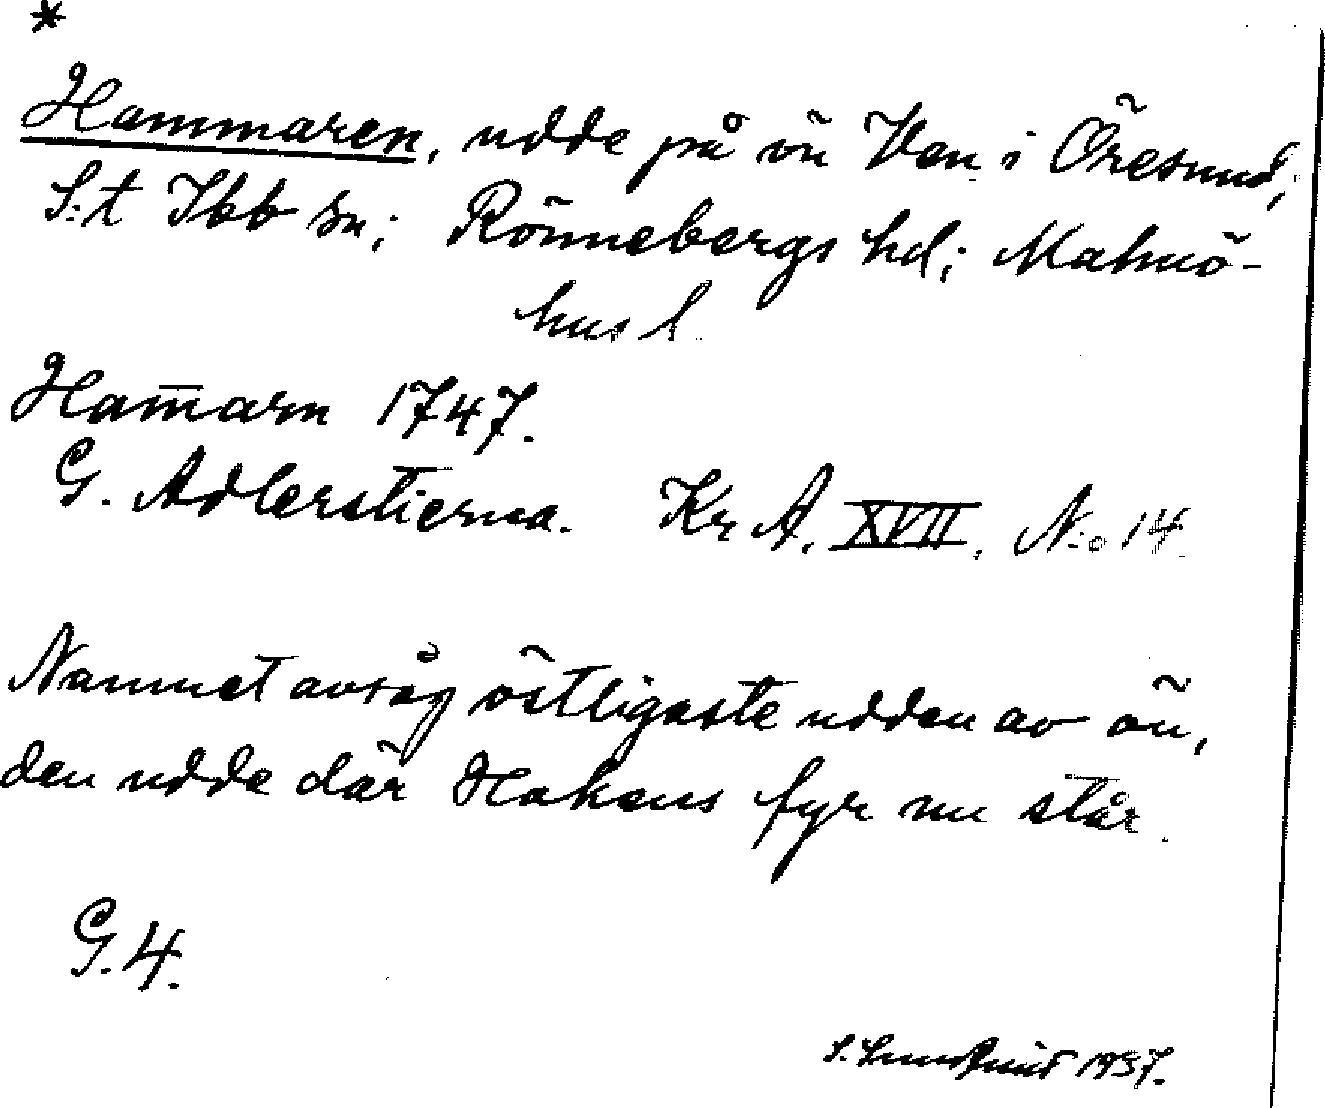 *
Hammaren, udde på ön Ven i Öresund;
S:t Ibb sn; Rönnebergs hd; Malmö-
hus l.
Ham̅arn 1747.
G. Adlerstierna. Kr A. XVII. N:o 14.
Namnet avsåg östligaste udden av ön,
den udde där Hakens fyr nu står.
G. 4.
S. 1937.